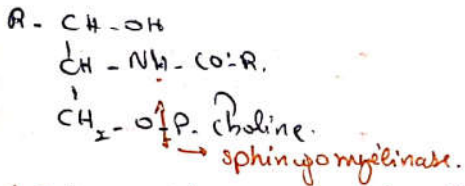 R - CH - OH
CH - NH - CO - R.
CH₂ - O - P - choline.
→ sphingomyélinase.